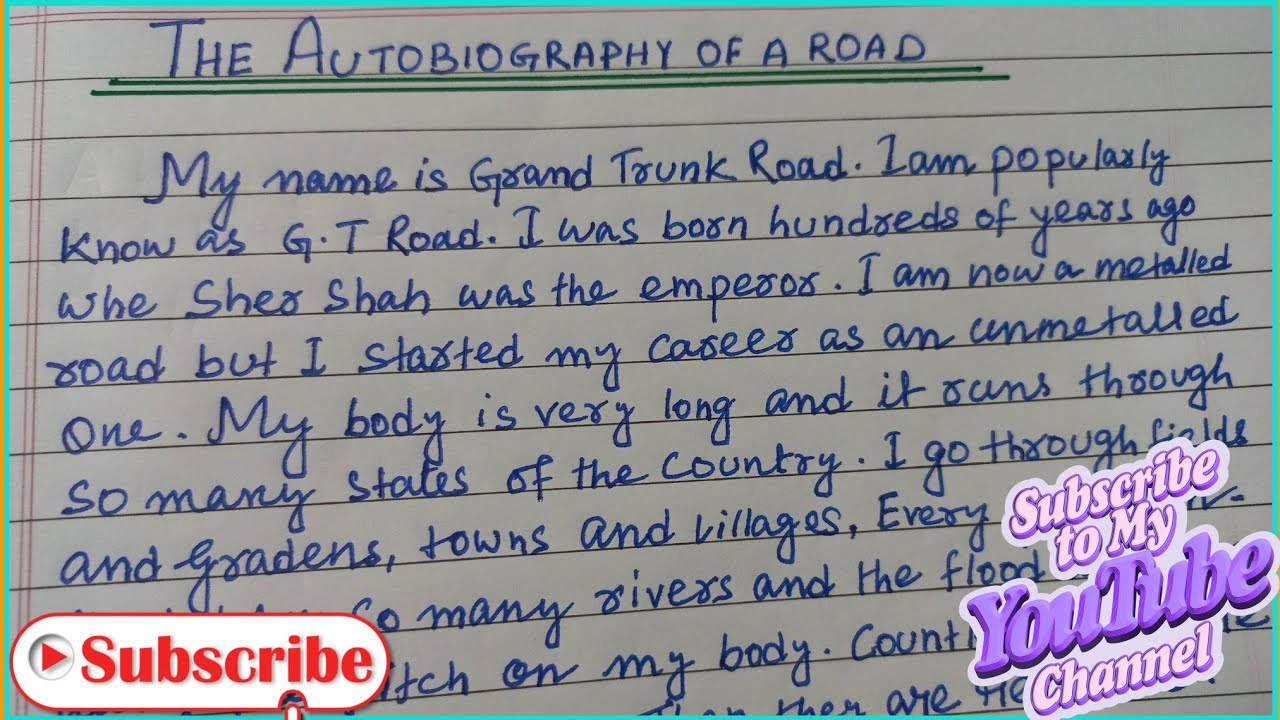 THE AUTOBIOGRAPHY OF A ROAD
My name is Grand Trunk Road. I am popularly
know as G.T Road. I was born hundreds of years ago
whe Sher Shah was the emperor. I am now a metalled
road but I started my career as an unmetalled
one. My body is very long and it runs through
so many states of the country. I go through fields
and gradens, towns and villages, Every
so many rivers and the flood
on my body.
are
Subscribe
Subscribe
to My
YouTube
Channel